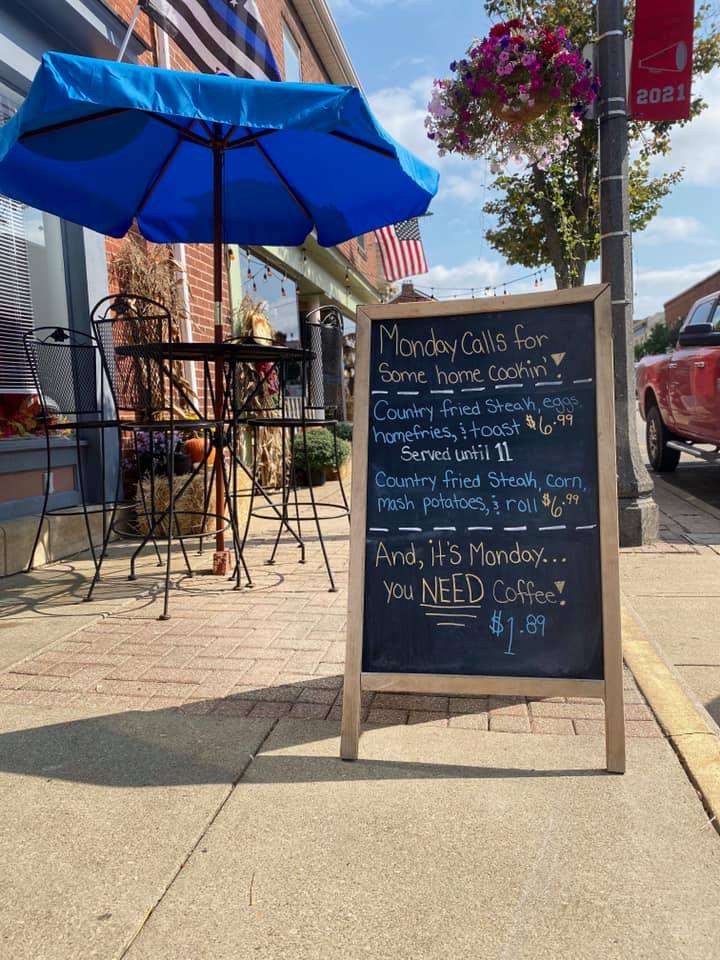 2021
Monday Calls for
Some home cookin'!
Country fried Steak, eggs,
homefries, & toast $6.99
Served until 11
Country fried Steak, corn,
mash potatoes, & roll $6.99
And, it's Monday...
you NEED Coffee!
$1.89